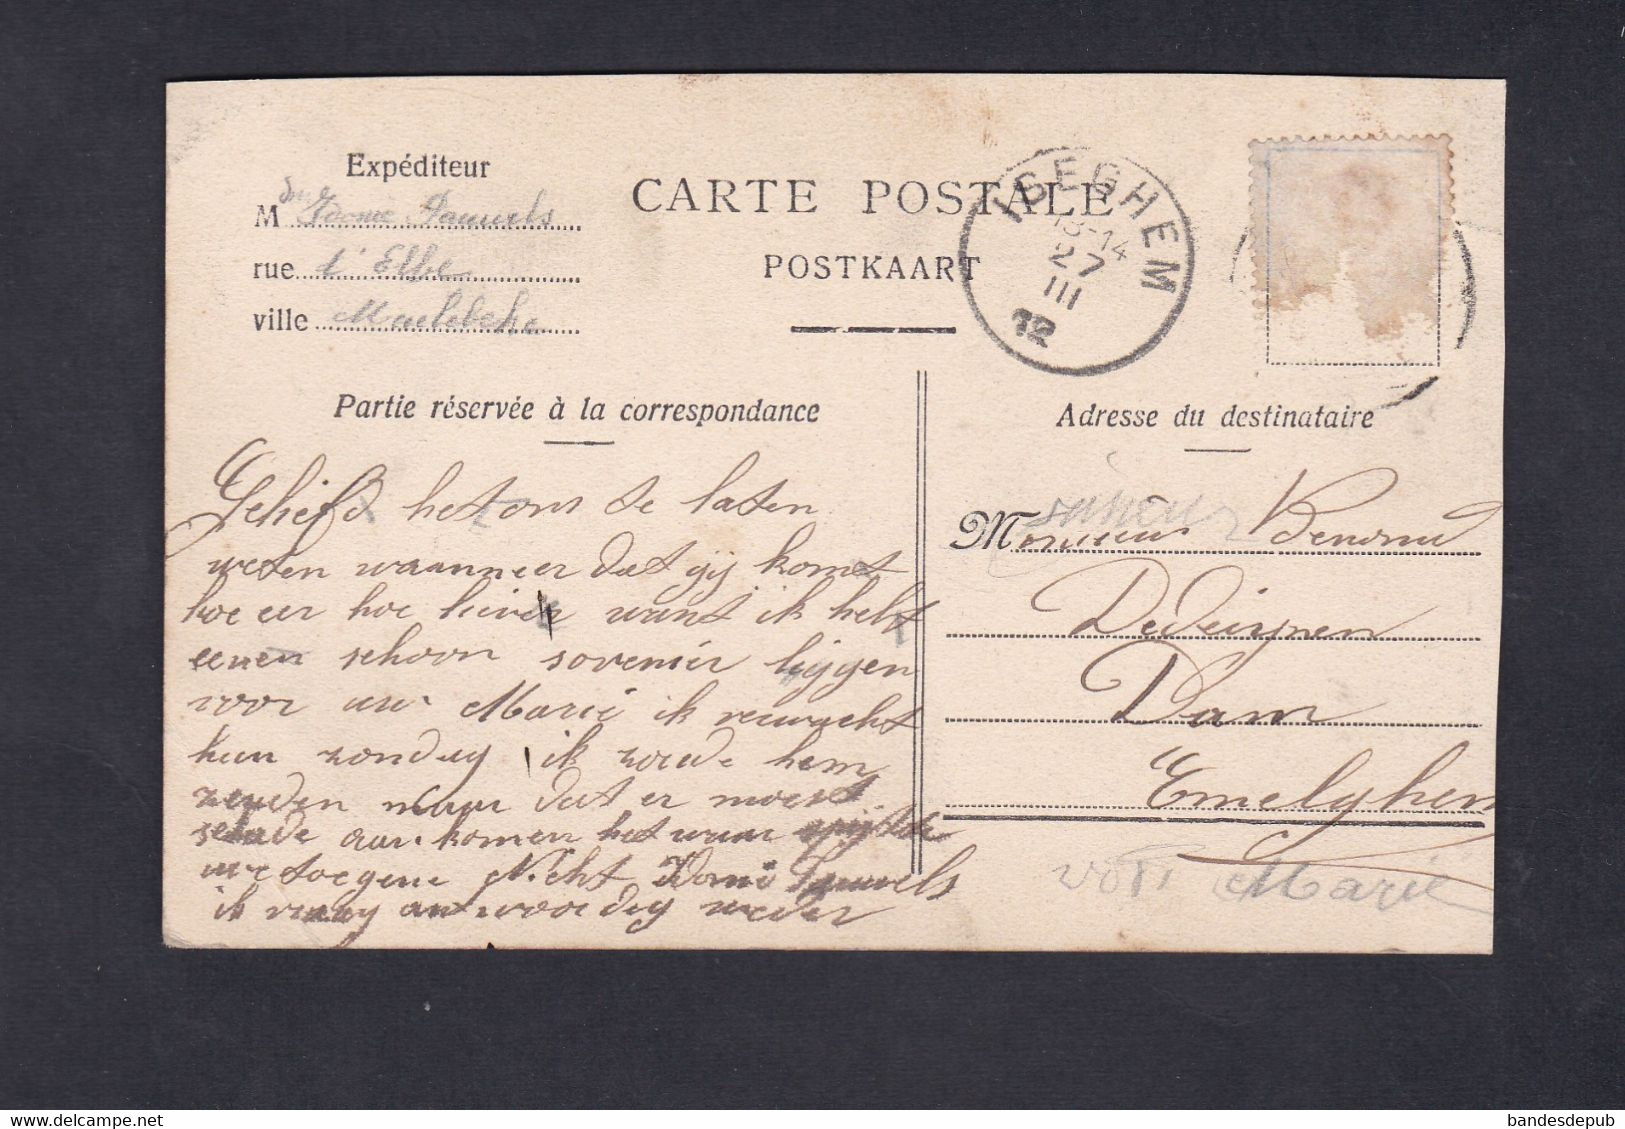 Expéditeur
M Pauwels
rue d'Elbe
ville
CARTE POSTALE
POSTKAART
ISEGHEM
13-14
27
III
12
Partie réservée à la correspondance
Adresse du destinataire
Geliefd het ons te laten
weten wanneer dat gij komt
hoe eer hoe liever want ik hebt
eenen schoon sovenir liggen
voor uw Marie ik verwacht
hun zondag ik zoude hem
zenden maar dat er moest
schade aan komen het waar
we toegene Nicht Pauwels
ik vraag antwoord weder
Monsieur
Dam
Emelghem
voor Marie
bandesdepub